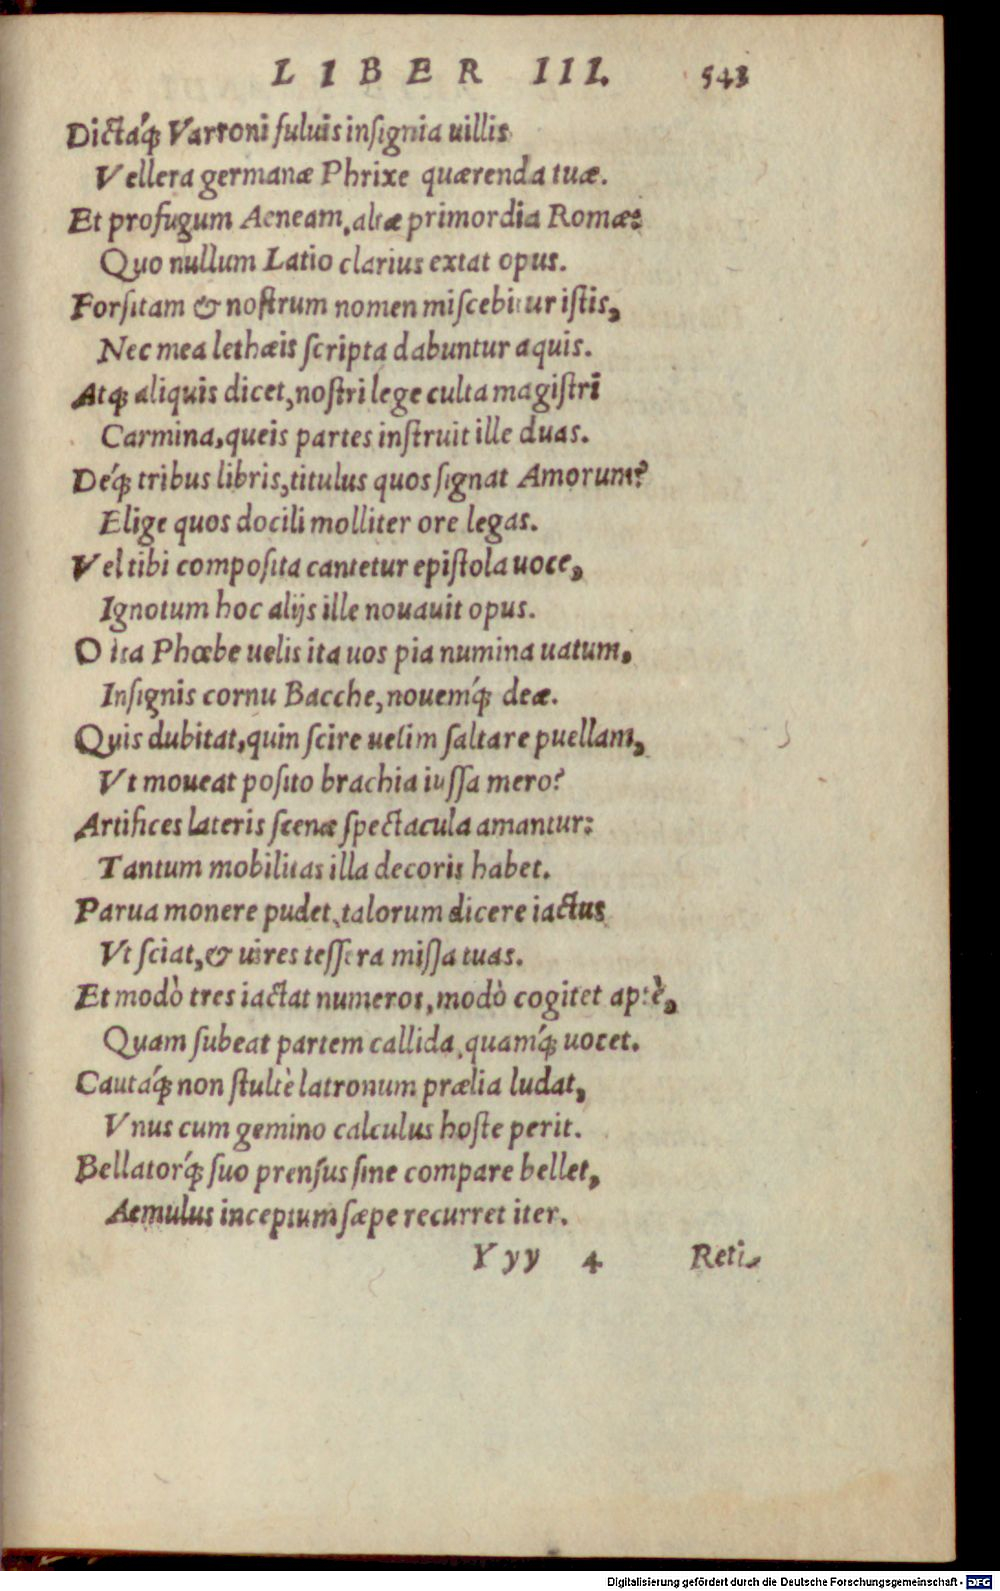 LIBER III. 543
Dictáq́; Varroni fuluis inſignia uillis
Vellera germanæ Phrixe quærenda tuæ.
Et profugum Aeneam, altæ primordia Romæ:
Quo nullum Latio clarius extat opus.
Forſitam & noſtrum nomen miſcebitur iſtis,
Nec mea lethæis ſcripta dabuntur aquis.
Atq; aliquis dicet, noſtri lege culta magiſtri
Carmina, queis partes inſtruit ille duas.
Deq́; tribus libris, titulus quos ſignat Amorum?
Elige quos docili molliter ore legas.
Vel tibi compoſita cantetur epiſtola uoce,
Ignotum hoc alijs ille nouauit opus.
O ita Phœbe uelis ita uos pia numina uatum,
Inſignis cornu Bacche, nouemq́; deæ.
Quis dubitat, quin ſcire uelim ſaltare puellam,
Vt moueat poſito brachia iuſſa mero?
Artifices lateris ſcenæ ſpectacula amantur:
Tantum mobilitas illa decoris habet.
Parua monere pudet, talorum dicere iactus
Vt ſciat, & uires teſſera miſſa tuas.
Et modò tres iactat numeros, modò cogitet aptè,
Quam ſubeat partem callida, quamq́; uocet.
Cautaq́; non ſtultè latronum prælia ludat,
Vnus cum gemino calculus hoſte perit.
Bellatorq́; ſuo prenſus ſine compare bellet,
Aemulus inceptum ſæpe recurret iter.
Yyy 4 Reti-
Digitalisierung gefördert durch die Deutsche Forschungsgemeinschaft - DFG